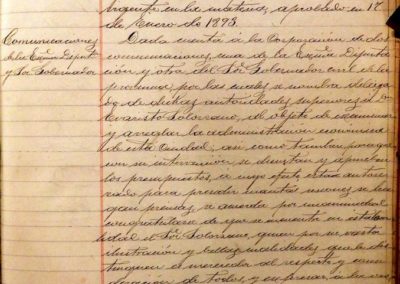 vigente en la materia, aprobado en 17
de Enero de 1893.
Comunicaciones
de la Excma Diputn
y Sor Gobernador
Dada cuenta á la Corporacion de dos
comunicaciones, una de la Excma Diputa
cion y otra del Sor Gobernador civil de la
provincia, por las cuales se nombra delega
do de dichas autoridades superiores á D.
Evaristo Solorzano, al objeto de examinar
y arreglar la administracion economica
de esta Ciudad, asi como tambien para que
con su intervencion se discutan y aprueben
los presupuestos, á cuyo efecto está autori
zado para presidir cuantas sesiones se ha
gan precisas, se acuerda por unanimidad
congratularse de que se encuentre en esta
el Sor Solorzano, quien por su vasta
ilustracion y bellas cualidades que le dis
tinguen es merecedor al respeto y consi
deracion de todos, y expresar, á la vez